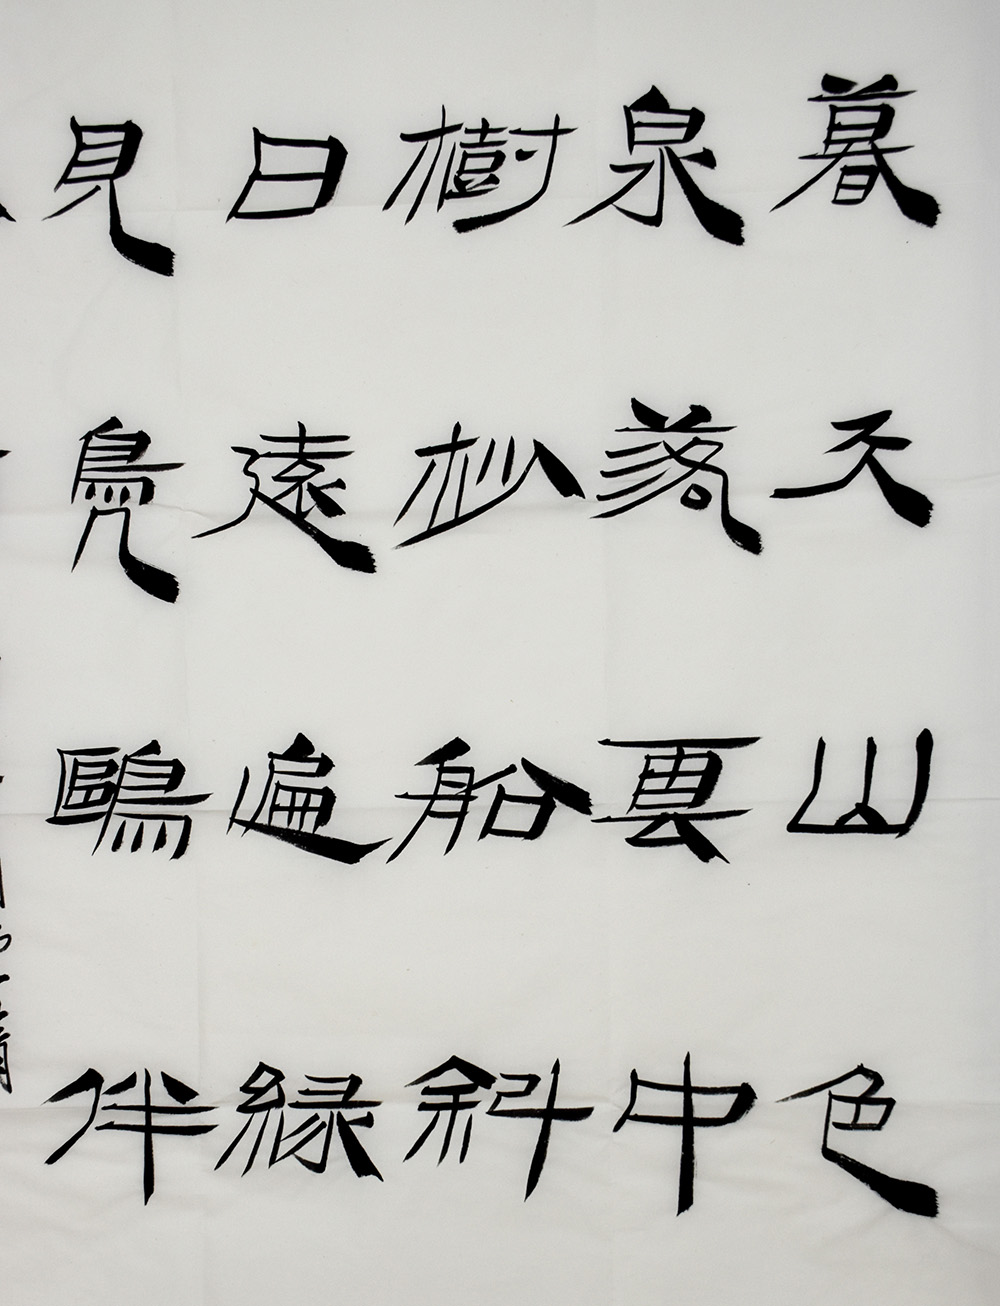 暮天山色
泉落雲中
樹杪船斜
日遠遍緑
見鳧鷗伴